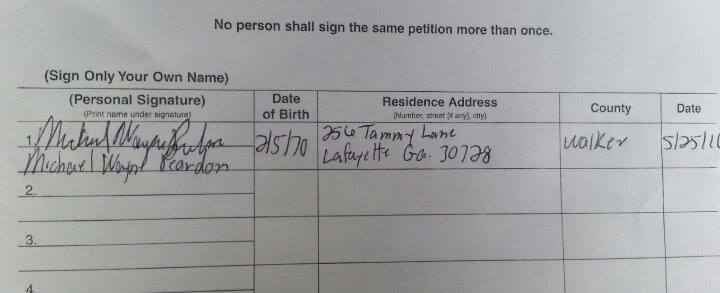 No person shall sign the same petition more than once.
(Sign Only Your Own Name)
(Personal Signature)
(Print name under signature)
Date
of Birth
Residence Address
(Number, street [if any], city)
County
Date
1. Michael Wayne
Michael Wayne Reardon
2/5/70
256 Tammy Lane
Lafayette Ga. 30728
Walker
5/25/1
2.
3.
4